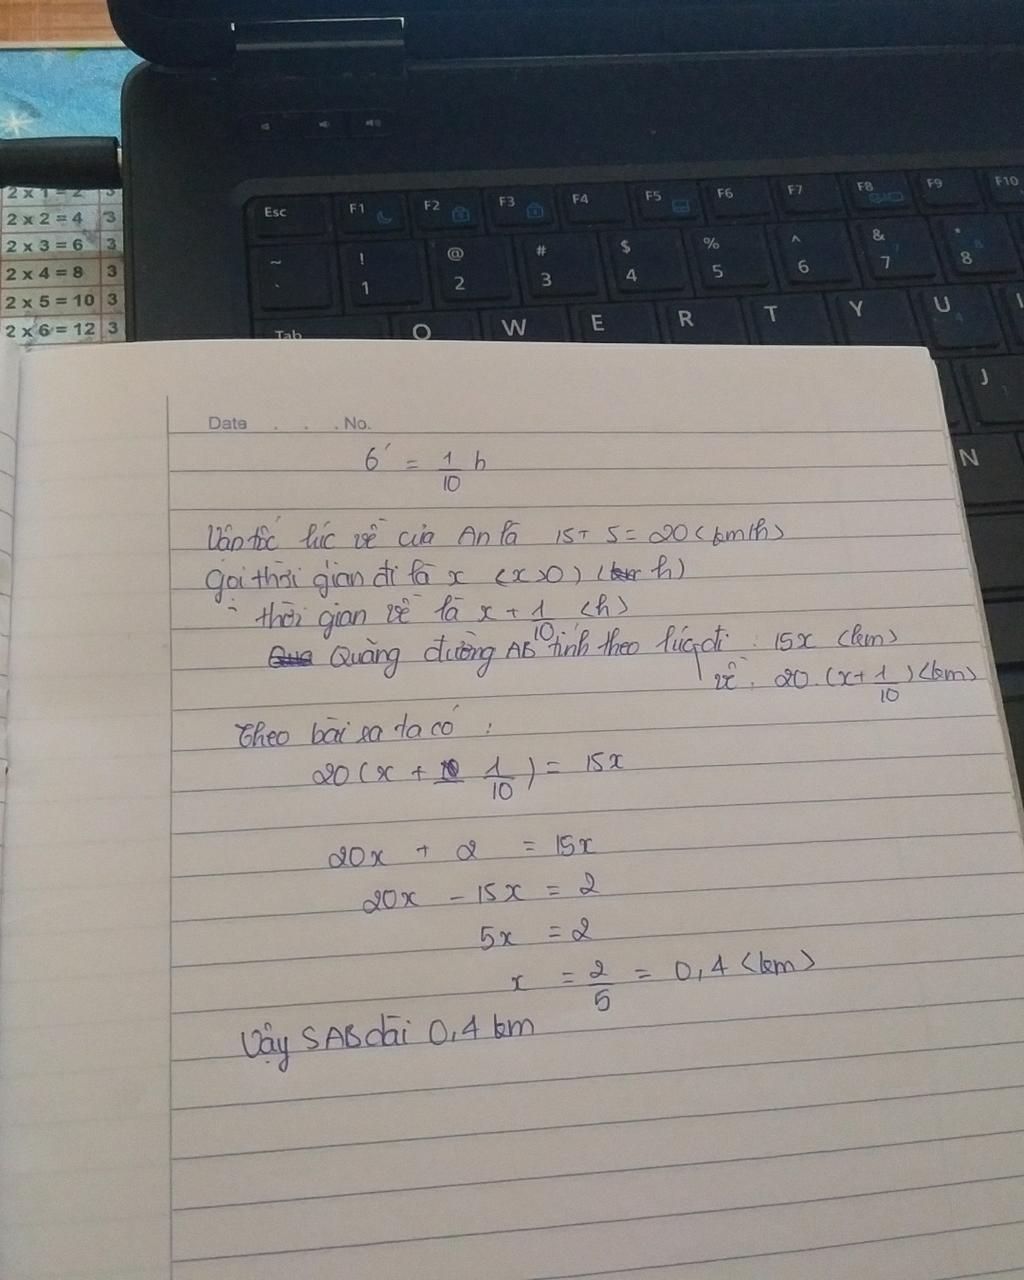 2 x 1 = 2 3
2 x 2 = 4 3
2 x 3 = 6 3
2 x 4 = 8 3
2 x 5 = 10 3
2 x 6 = 12 3
Esc F1 F2 F3 F4 F5 F6 F7 F8 F9 F10
~ ` ! 1 @ 2 # 3 $ 4 % 5 ^ 6 & 7 * 8
Tab Q W E R T Y U
J
N
Date . . . No.
6' = 1/10 h
Vận tốc lúc về của An là 15+5=20 (km/h)
Gọi thời gian đi là x (x>0) (h)
: thời gian về là x + 1/10 (h)
Quãng đường AB tính theo lúc đi : 15x (km)
về : 20.(x+1/10) (km)
Theo bài ra ta có :
20(x + 1/10) = 15x
20x + 2 = 15x
20x - 15x = 2
5x = 2
x = 2/5 = 0,4 (km)
Vậy SAB dài 0,4 km